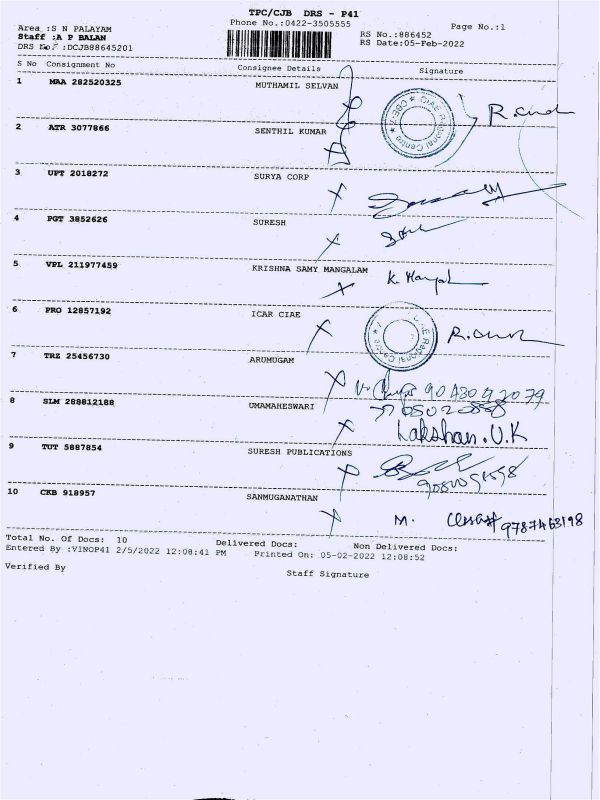 TPC/CJB DRS - P41
Phone No.:0422-3505555
Page No.:1
Area :S N PALAYAM
Staff :A P BALAN
DRS No :DCJB88645201
RS No:886452
RS Date:05-Feb-2022
S No Consignment No Consignee Details Signature
1 MAA 282520325 MUTHAMIL SELVAN
CIAE Regional Centre ★ CBE-7 ★
2 ATR 3077866 SENTHIL KUMAR
3 UPT 2018272 SURYA CORP
4 PGT 3852626 SURESH
5 VPL 211977459 KRISHNA SAMY MANGALAM
6 PRO 12857192 ICAR CIAE
CIAE Regional Centre
7 TRZ 25456730 ARUMUGAM
8 SLM 288812188 UMAMAHESWARI
Lakshan.U.K
9 TUT 5887854 SURESH PUBLICATIONS
10 CKB 918957 SANMUGANATHAN
M. 9787463198
Total No. Of Docs: 10 Delivered Docs: Non Delivered Docs:
Entered By :VINOP41 2/5/2022 12:08:41 PM Printed On: 05-02-2022 12:08:52
Verified By Staff Signature